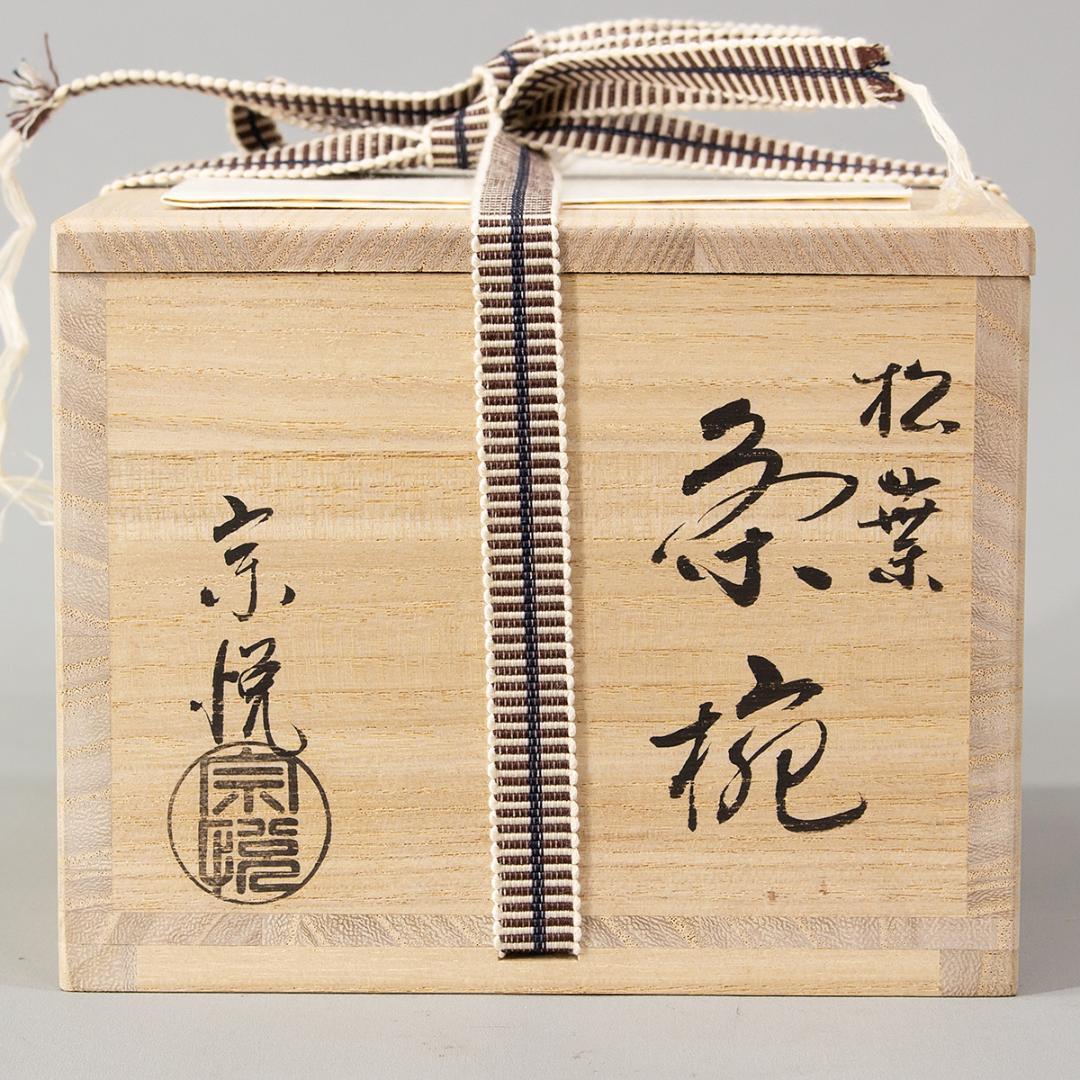 松葉
茶椀
宗悦
宗悦